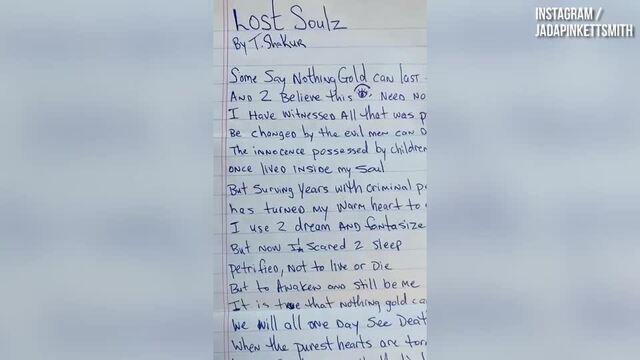 INSTAGRAM /
JADAPINKETTSMITH
Lost Soulz
By T. Shakur
Some Say Nothing Gold can last
AND 2 Believe this NEED NO
I Have witnessed All that was p
Be changed by the evil men can D
The innocence possessed by children
once lived inside my Soul
But Surving Years with criminal p
has turned my warm heart to
I use 2 dream AND fantasize
But now I'm scared 2 sleep
petrified, Not to live or Die
But to Awaken and still be me
It is true that nothing gold ca
We will all one Day See Deat
When the purest hearts are tor